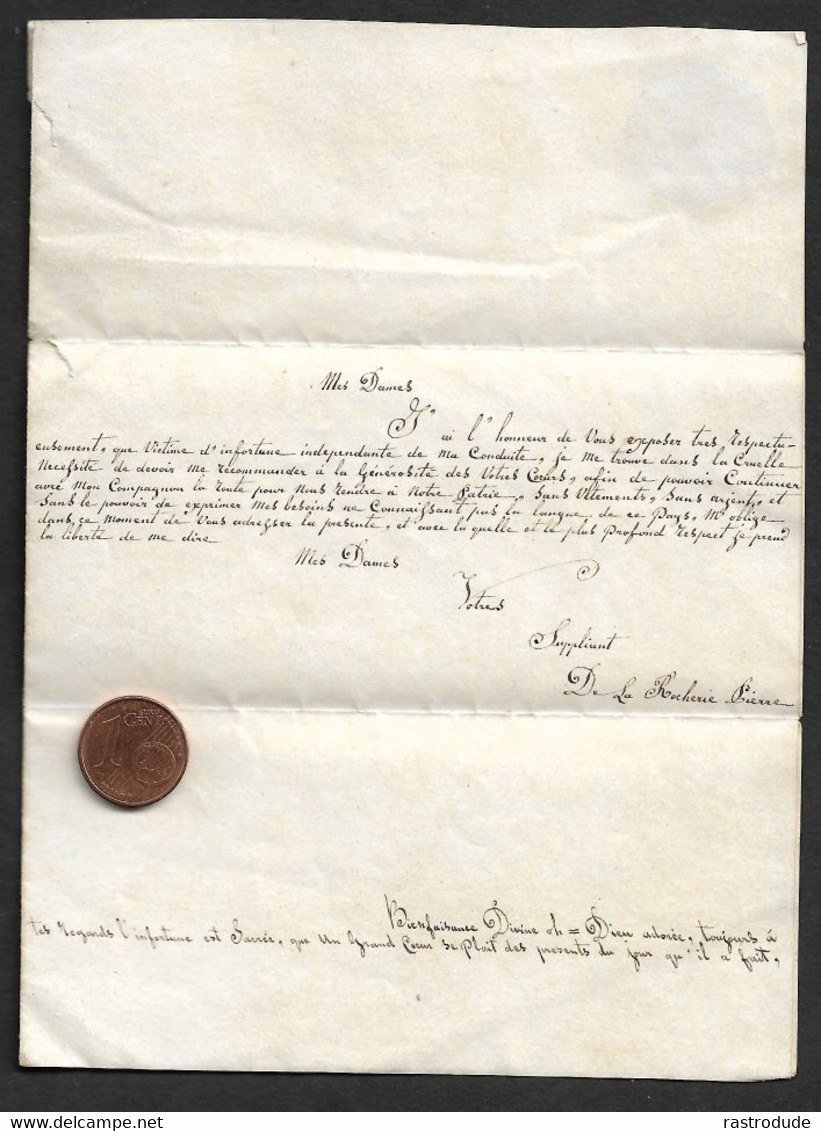 Mes Dames
J'ai l'honneur de Vous exposer tres respectu-
eusement, que Victime d'infortune independante de ma Conduite, je me trouve dans la Cruelle
Necessité de devoir me recommander à la Générosité des Votres Cœurs, afin de pouvoir Continuer
avec Mon Compagnon la route pour Nous rendre à Notre Patrie, Sans Vêtements, Sans argent, et
Sans le pouvoir de exprimer Mes besoins ne Connaissant pas la langue de ce Pays, M'oblige
dans ce moment de Vous adresser la presente, et avec la quelle et le plus Profond respect je prend
la liberté de me dire
Mes Dames
Votres
Suppliant
De La Rocherie Pierre
1 EURO CENT
Bienfaisance Divine oh = Dieu adorée, toujours à
tes regards l'infortune est Sacrée, que un Grand Cœur se plait des presents du jour qu'il a fait,
rastrodude